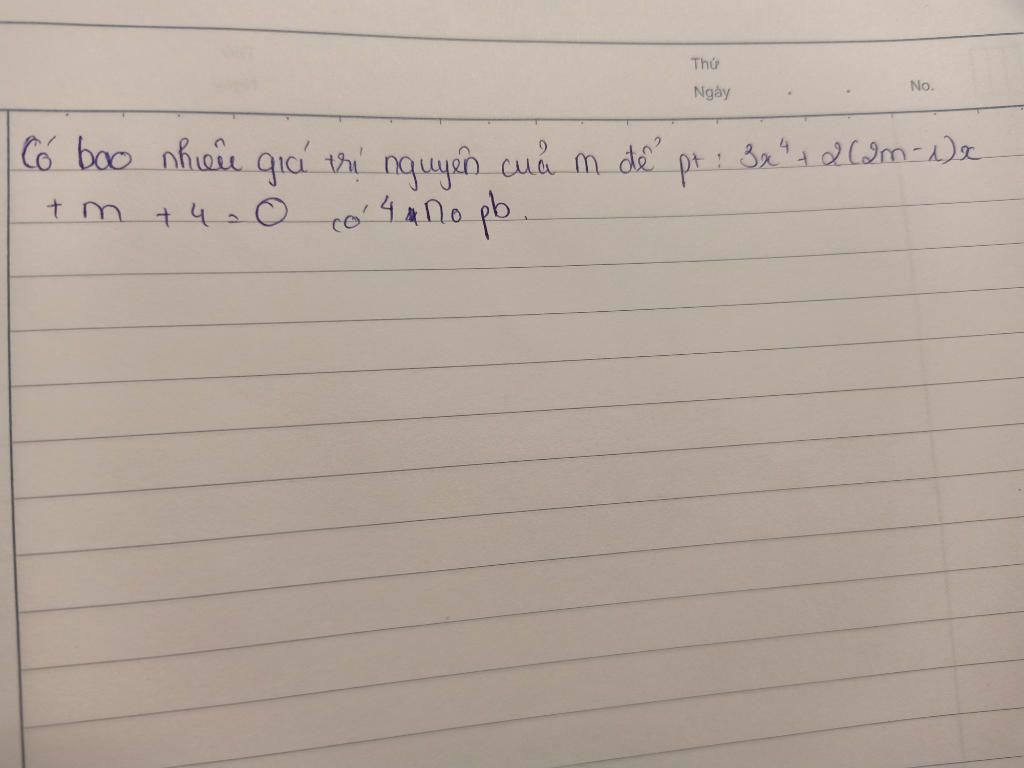 Thứ
Ngày . . No.
Có bao nhiêu giá trị nguyên của m để pt : 3x⁴ + 2(2m-1)x
+ m + 4 = 0 có 4 no pb.